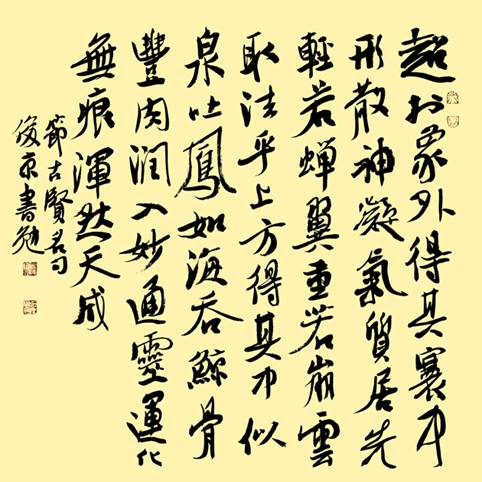 超以象外得其寰中
形散神凝氣質居先
輕若蟬翼重若崩雲
取法乎上方得其中似
泉吐鳳如海吞鯨骨
豐肉潤入妙通靈運化
無痕渾然天成
節古賢名句
俊京書勉